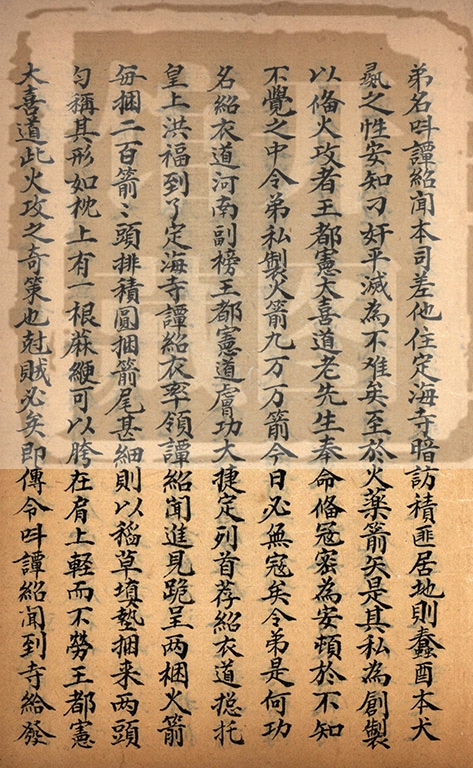 弟名呌譚紹聞本司差他住定海寺暗訪積匪居地則蠢酉本犬
羆之性安知刁奸平滅為不难矣至於火薬箭矢是其私為創製
以俻火攻者王都憲大喜道老先生奉命俻冦宻為安頓於不知
不覺之中令弟私製火箭九万万箭今日必無冦矣令弟是何功
名紹衣道河南副榜王都憲道膚功大捷定列首荐紹衣道捴托
皇上洪福到了定海寺譚紹衣率領譚紹聞進見跪呈两梱火箭
每捆二百箭〻頭排積圓捆箭尾甚細則以稻草填墊捆来两頭
匀稱其形如枕上有一根麻綆可以胯在肩上軽而不劳王都憲
大喜道此火攻之奇策也尅賊必矣即傳令呌譚紹聞到寺給發